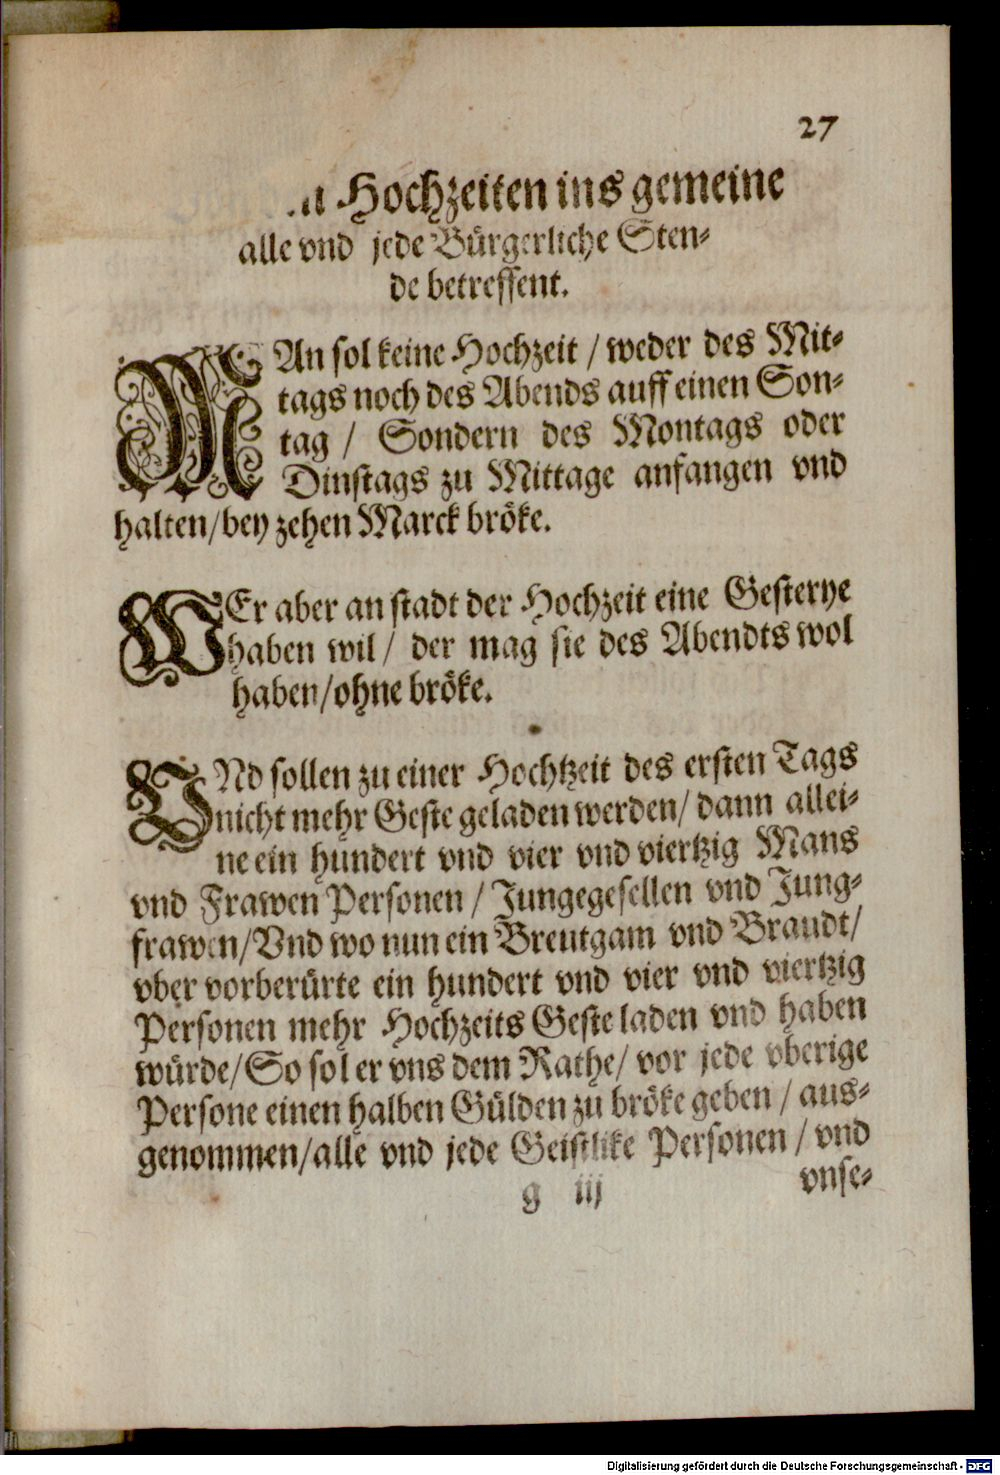 27
Hochzeiten ins gemeine
alle vnd jede Bürgerliche Sten-
de betreffent.
MAn sol keine Hochzeit / weder des Mit-
tags noch des Abends auff einen Son-
tag / Sondern des Montags oder
Dinstags zu Mittage anfangen vnd
halten/bey zehen Marck bröke.
WEr aber an stadt der Hochzeit eine Gesterye
haben wil / der mag sie des Abendts wol
haben/ohne bröke.
VNd sollen zu einer Hochtzeit des ersten Tags
nicht mehr Geste geladen werden/ dann allei-
ne ein hundert vnd vier vnd viertzig Mans
vnd Frawen Personen / Jungegesellen vnd Jung-
frawen/Vnd wo nun ein Breutgam vnd Braudt/
vber vorberürte ein hundert vnd vier vnd viertzig
Personen mehr Hochzeits Geste laden vnd haben
würde/So sol er vns dem Rathe/ vor jede vberige
Persone einen halben Gülden zu bröke geben / aus-
genommen/alle vnd jede Geistlike Personen / vnd
g iij vnse-
Digitalisierung gefördert durch die Deutsche Forschungsgemeinschaft - DFG